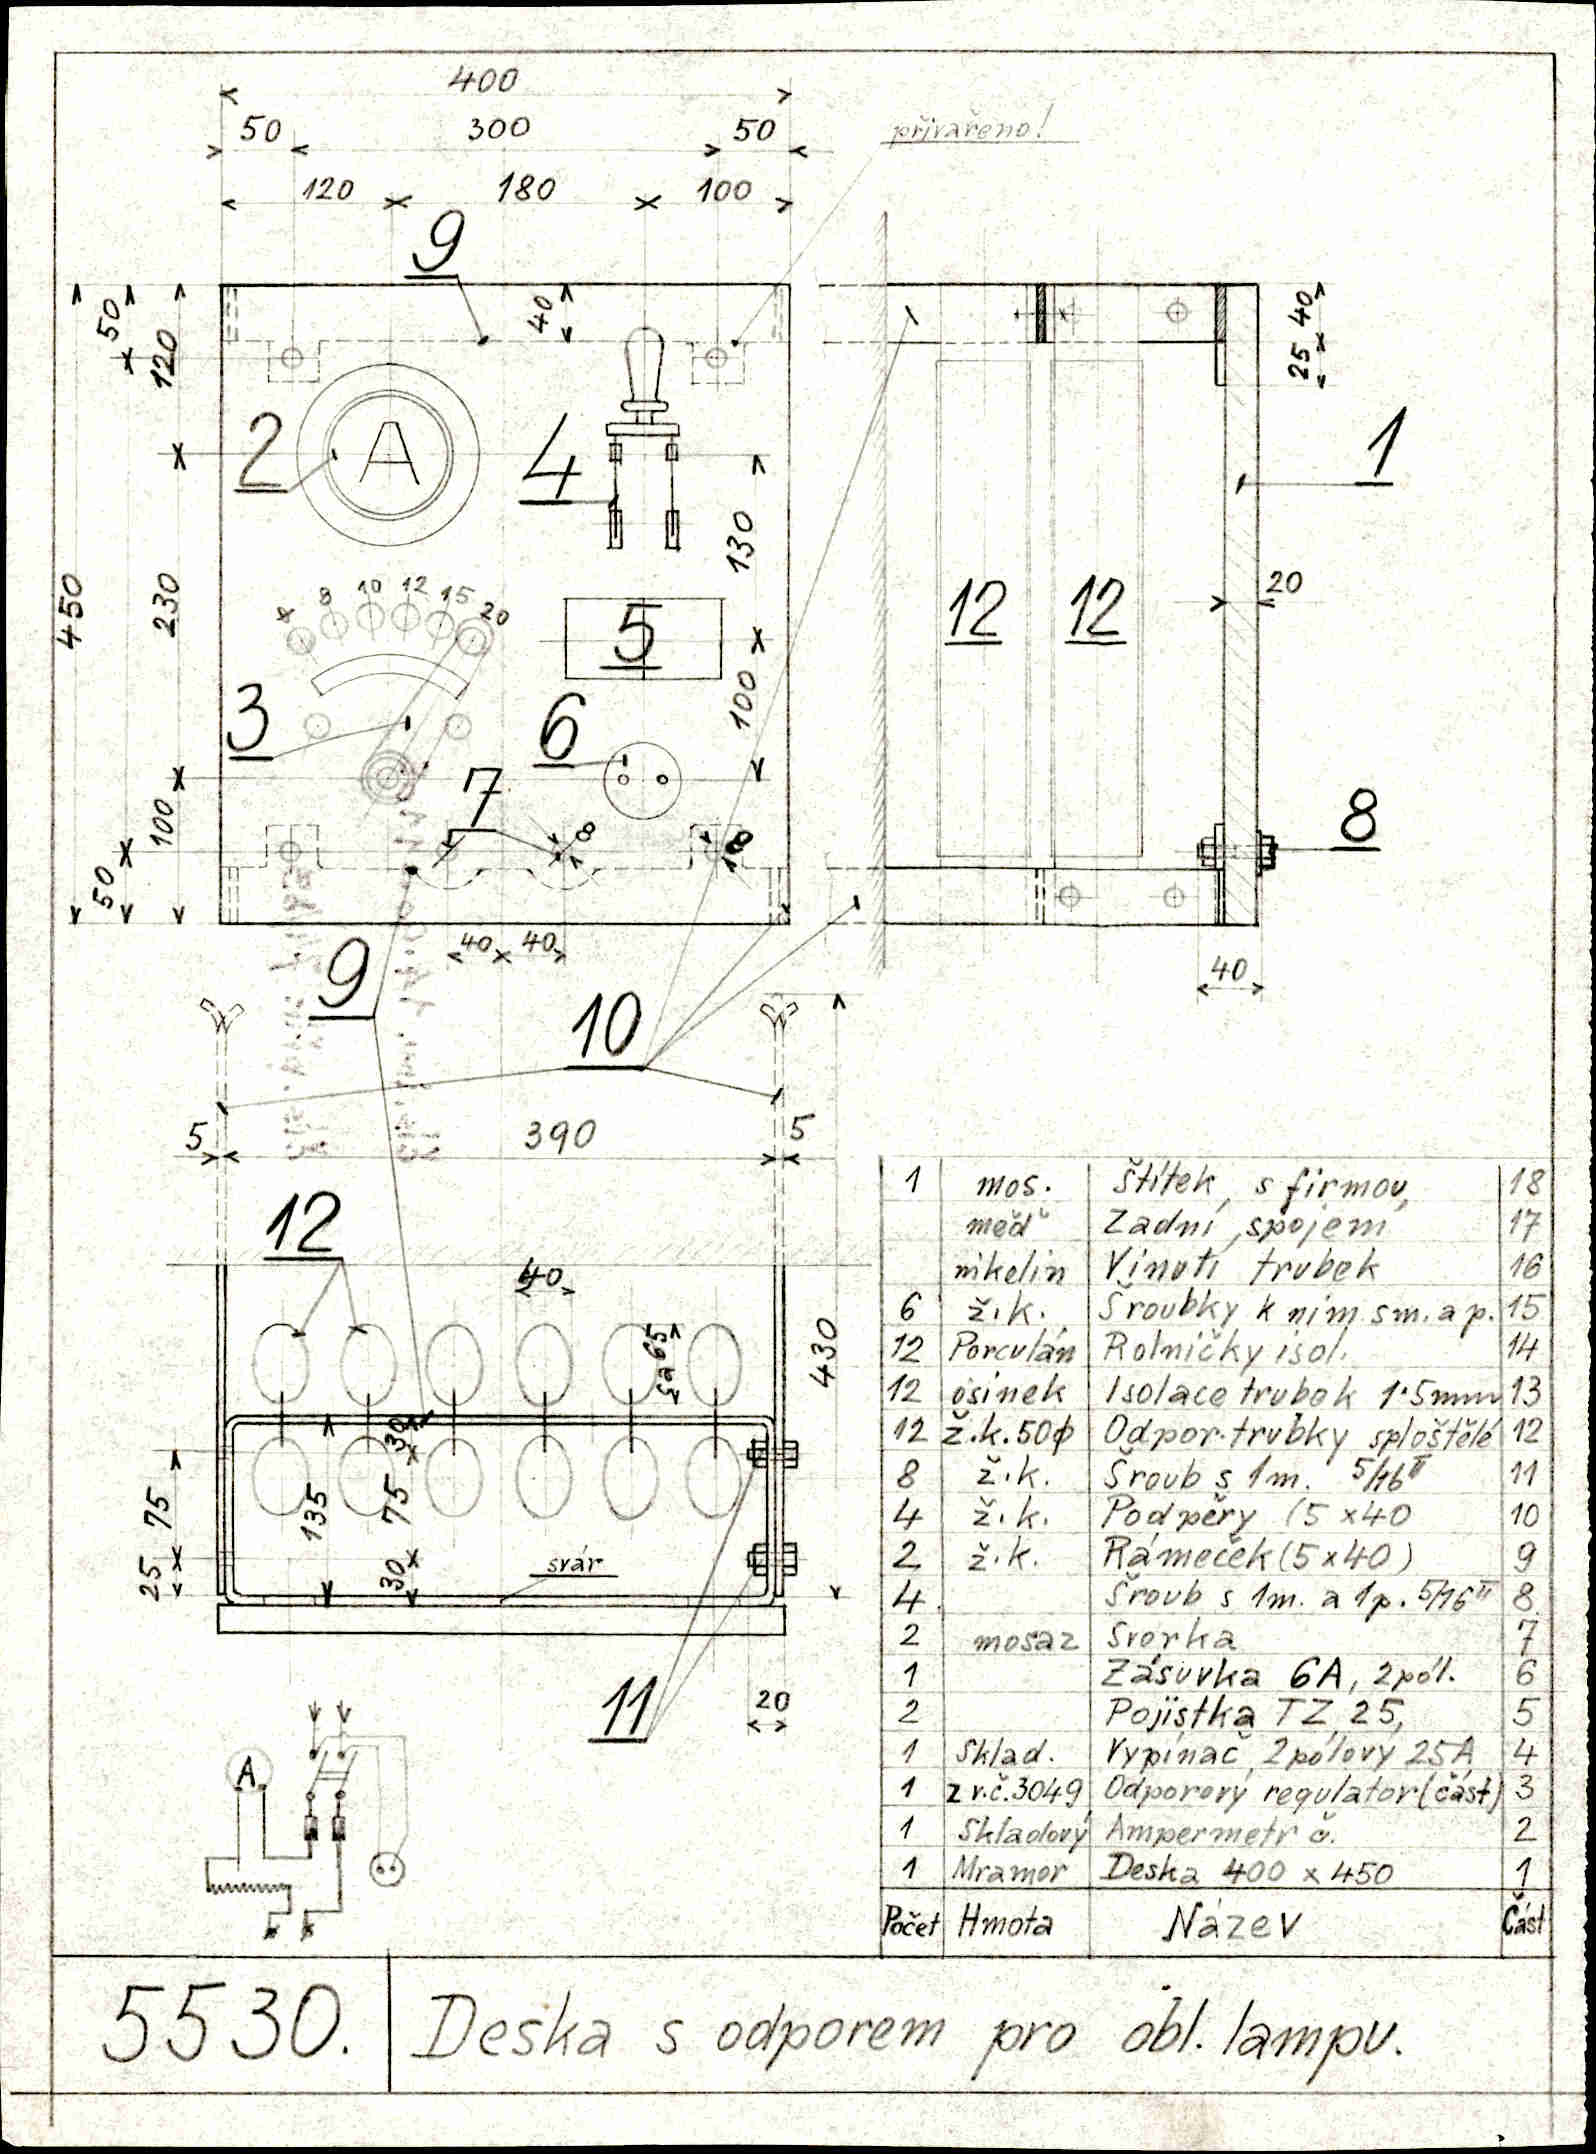 400
50 300 50
přivařeno!
120 180 100
9
50 120 40
40
25
2 A 4 1
130
450 230
4 8 10 12 15 20
5 12 12 20
3 6 100
7 8 8
100 8
50
40 40
40
9 10
5 390 5
12
40
ca 65
430
30
75 135 75
25 30 svár
11 20
A
1 mos. Štítek s firmou 18
měď Zadní spojení 17
nikelin Vinutí trubek 16
6 ž.k. Šroubky k nim s m. a p. 15
12 Porculán Rolničky isol. 14
12 osinek Isolace trubek 1·5mm 13
12 ž.k.50ϕ Odpor. trubky sploštělé 12
8 ž.k. Šroub s 1m. 5/16" 11
4 ž.k. Podpěry (5 x40 10
2 ž.k. Rámeček (5x40) 9
4 Šroub s 1m. a 1p. 5/16" 8
2 mosaz Svorka 7
1 Zásuvka 6A, 2pól. 6
2 Pojistka TZ 25, 5
1 Sklad. Vypínač 2pólový 25A 4
1 z v.č.3049 Odporový regulator (část) 3
1 Skladový Ampermetr č. 2
1 Mramor Deska 400 x 450 1
Počet Hmota Název Část
5530. Deska s odporem pro obl. lampu.